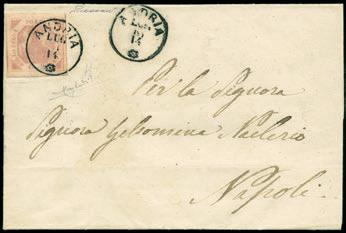 ANDRIA
LUG.
14
ANDRIA
LUG.
14
Per la Signora
Signora Gelsomina Valerio
Napoli